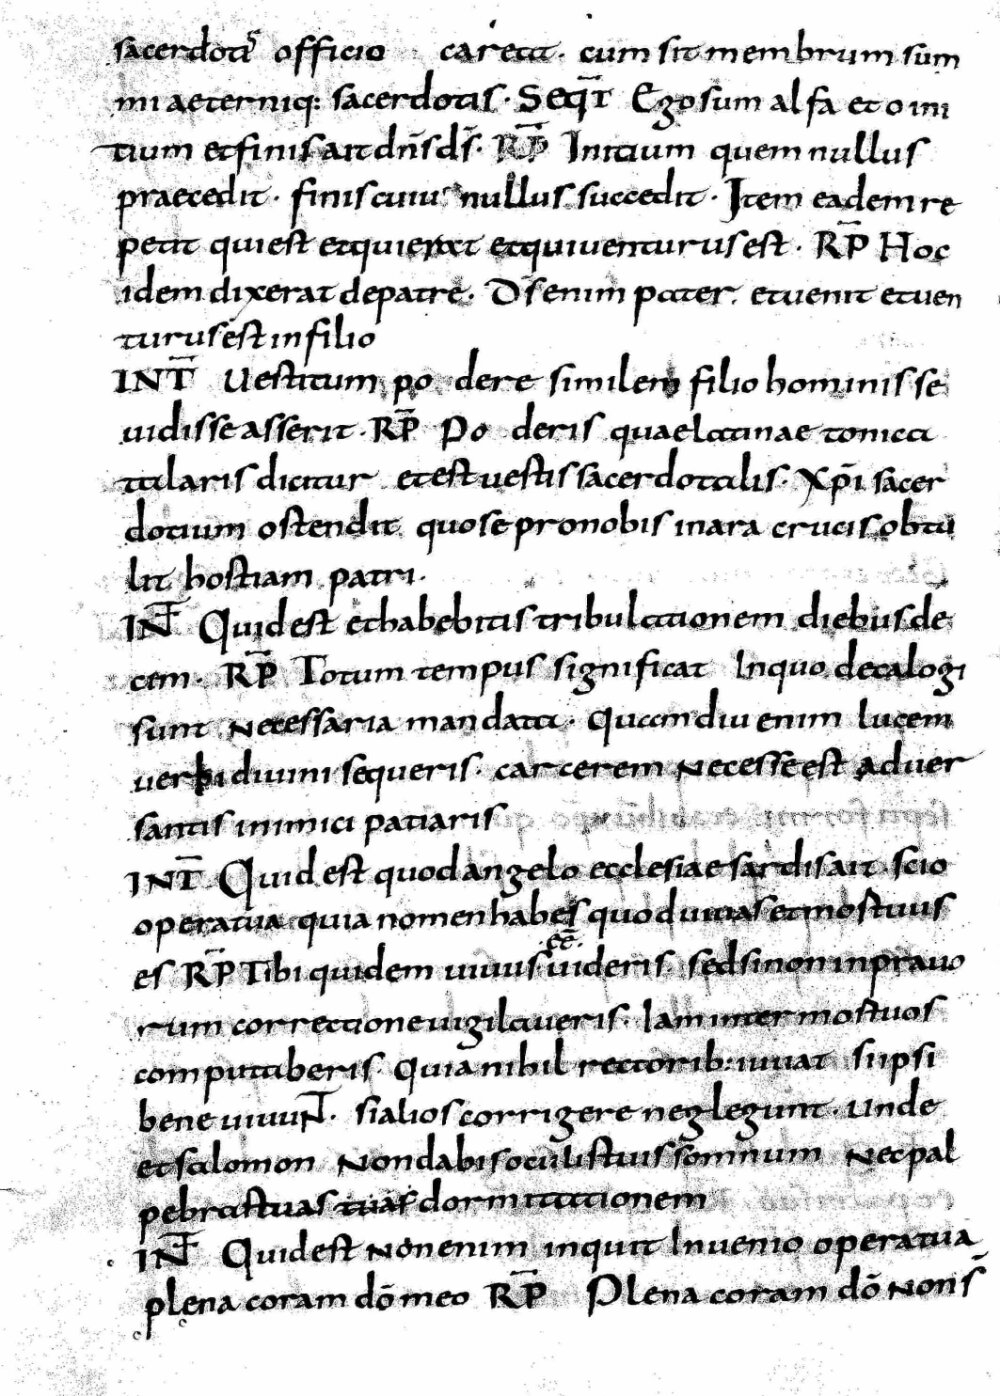 sacerdotis officio caret. cum sit membrum sum
mi aeterniq: sacerdotis. SeqT̄ Ego sum alfa et o ini
tium et finis ait dn̄s ds̄. RP̄ Initium quem nullus
praecedit. finis cuius nullus succedit. Item eadem re
petit qui est et qui erat et qui venturus est. RP̄ Hoc
idem dixerat de patre. Ds̄ enim pater. et venit et ven
turus est in filio
INT̄ Uestitum po dere similem filio hominis se
uidisse asserit. RP̄ Po deris quae latinae tonica
talaris dicitur et est uestis sacerdotalis. Xp̄i sacer
dotium ostendit quo se pro nobis in ara crucis obtu
lit hostiam patri.
IN̄T Quid est et habebitis tribulationem diebus de
cem. RP̄ Totum tempus significat In quo decalogi
sunt necessaria mandata. Quamdiu enim lucem
verbi diuini sequeris. carcerem necesse est aduer
santis inimici patiaris
INT̄ Quid est quod angelo ecclesiae sardis ait. scio
opera tua quia nomen habes quod uiuas et mostuus
es RP̄ Tibi quidem uiuus ēē uideris. sed si non in prauo
rum correctione uigilaueris. Iam inter mostuos
computaberis. Quia nihil rectorib: iuuat si ipsi
bene uiuuNT. si alios corrigere neglegunt. Unde
et salomon Non dabis oculis tuis somnum Nec pal
pebris tuas tuas dormitationem
IN̄T Quid est non enim inquit Inuenio opera tua
plena coram dō meo RP̄ Plena coram dō non s̄